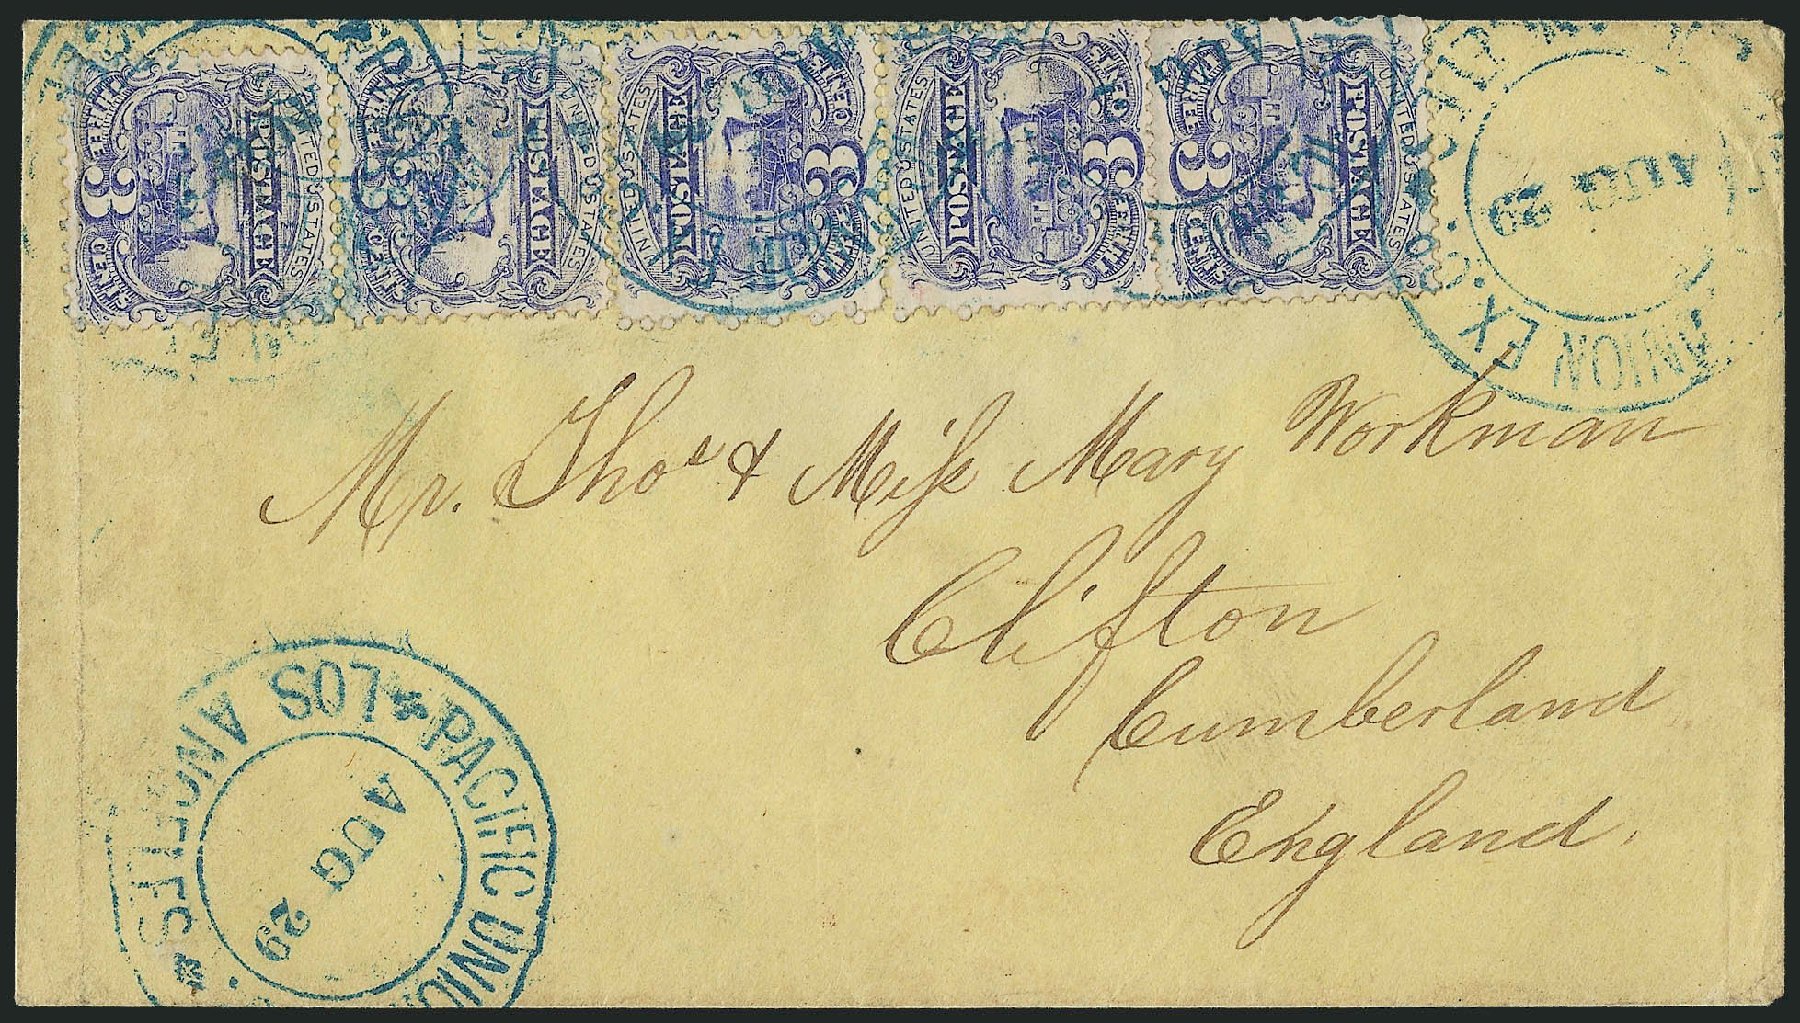 UNITED STATES POSTAGE THREE 3 CENTS
UNITED STATES POSTAGE THREE 3 CENTS
UNITED STATES POSTAGE THREE 3 CENTS
UNITED STATES POSTAGE THREE 3 CENTS
UNITED STATES POSTAGE THREE 3 CENTS
UNION EX. CO.
AUG 29
Mr. Thos & Miss Mary Workman
Clifton
Cumberland
England.
PACIFIC UNION
LOS ANGELES
AUG 29